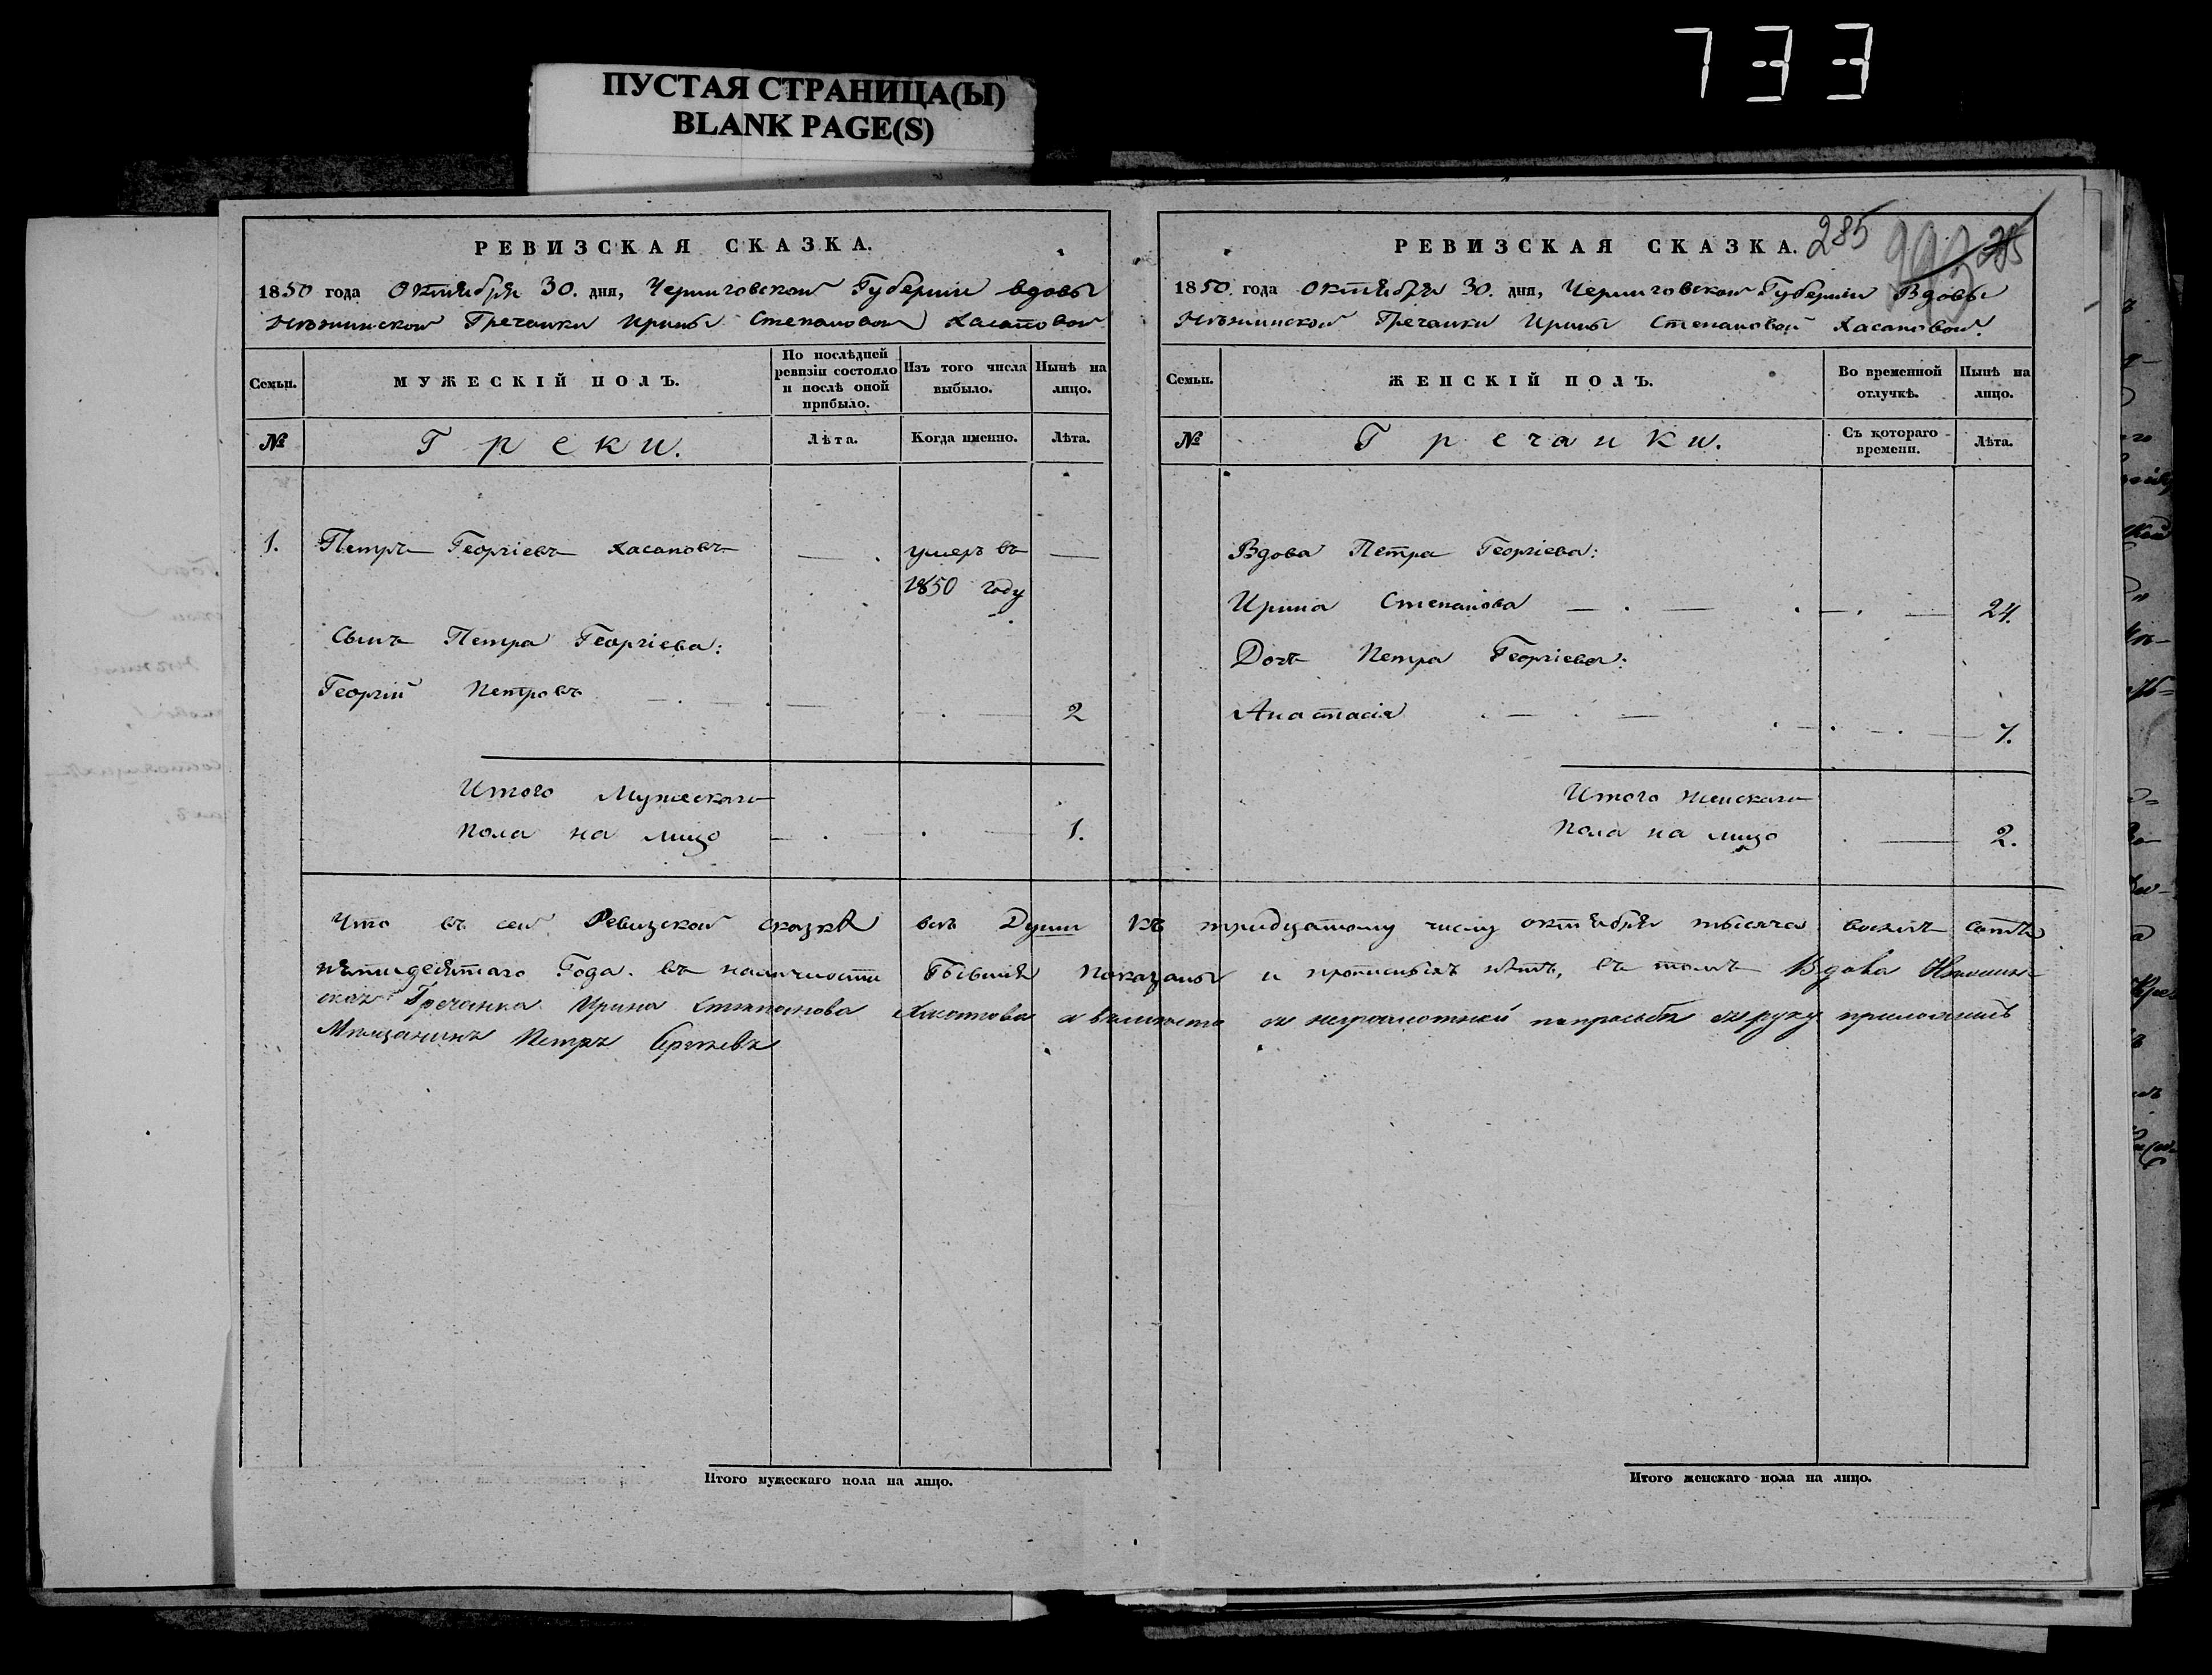 733
ПУСТАЯ СТРАНИЦА(Ы)
BLANK PAGE(S)
РЕВИЗСКАЯ СКАЗКА.
1850 года Октября 30. дня, Черниговской Губернiи вдовы
Нѣжинской Гречанки Ирины Степановой Хасаповой
Семьи.
МУЖЕСКІЙ ПОЛЪ.
По послѣдней ревизіи состояло и послѣ оной прибыло.
Изъ того числа выбыло.
Нынѣ на лицо.
№
Греки.
Лѣта.
Когда именно.
Лѣта.
1. Петръ Георгіевъ Хасаповъ — умеръ въ —
1850 году
Сынъ Петра Георгіева:
Георгій Петровъ 2
Итого Мужескаго
пола на лицо 1.
РЕВИЗСКАЯ СКАЗКА. 285
1850 года Октября 30. дня, Черниговской Губерніи Вдовы
Нѣжинской Гречанки Ирины Степановой Хасаповой.
Семьи.
ЖЕНСКІЙ ПОЛЪ.
Во временной отлучкѣ.
Нынѣ на лицо.
№
Гречанки.
Съ котораго времени.
Лѣта.
Вдова Петра Георгіева:
Ирина Степанова 24.
Дочь Петра Георгіева:
Анастасія 7.
Итого женскаго
пола на лицо 2.
Что въ сей Ревизской сказкѣ всѣ Души къ тридцатому числу октября тысяча восемь сотъ
пятидесятаго Года въ наличности Бывшія показаны и прописныхъ нѣтъ, въ томъ Вдова Нѣжин-
ская Гречанка Ирина Степанова Хасапова а вмѣсто ея неграмотной по просьбѣ ея руку приложилъ
Мѣщанинъ Петръ
Итого мужескаго пола на лицо.
Итого женскаго пола на лицо.